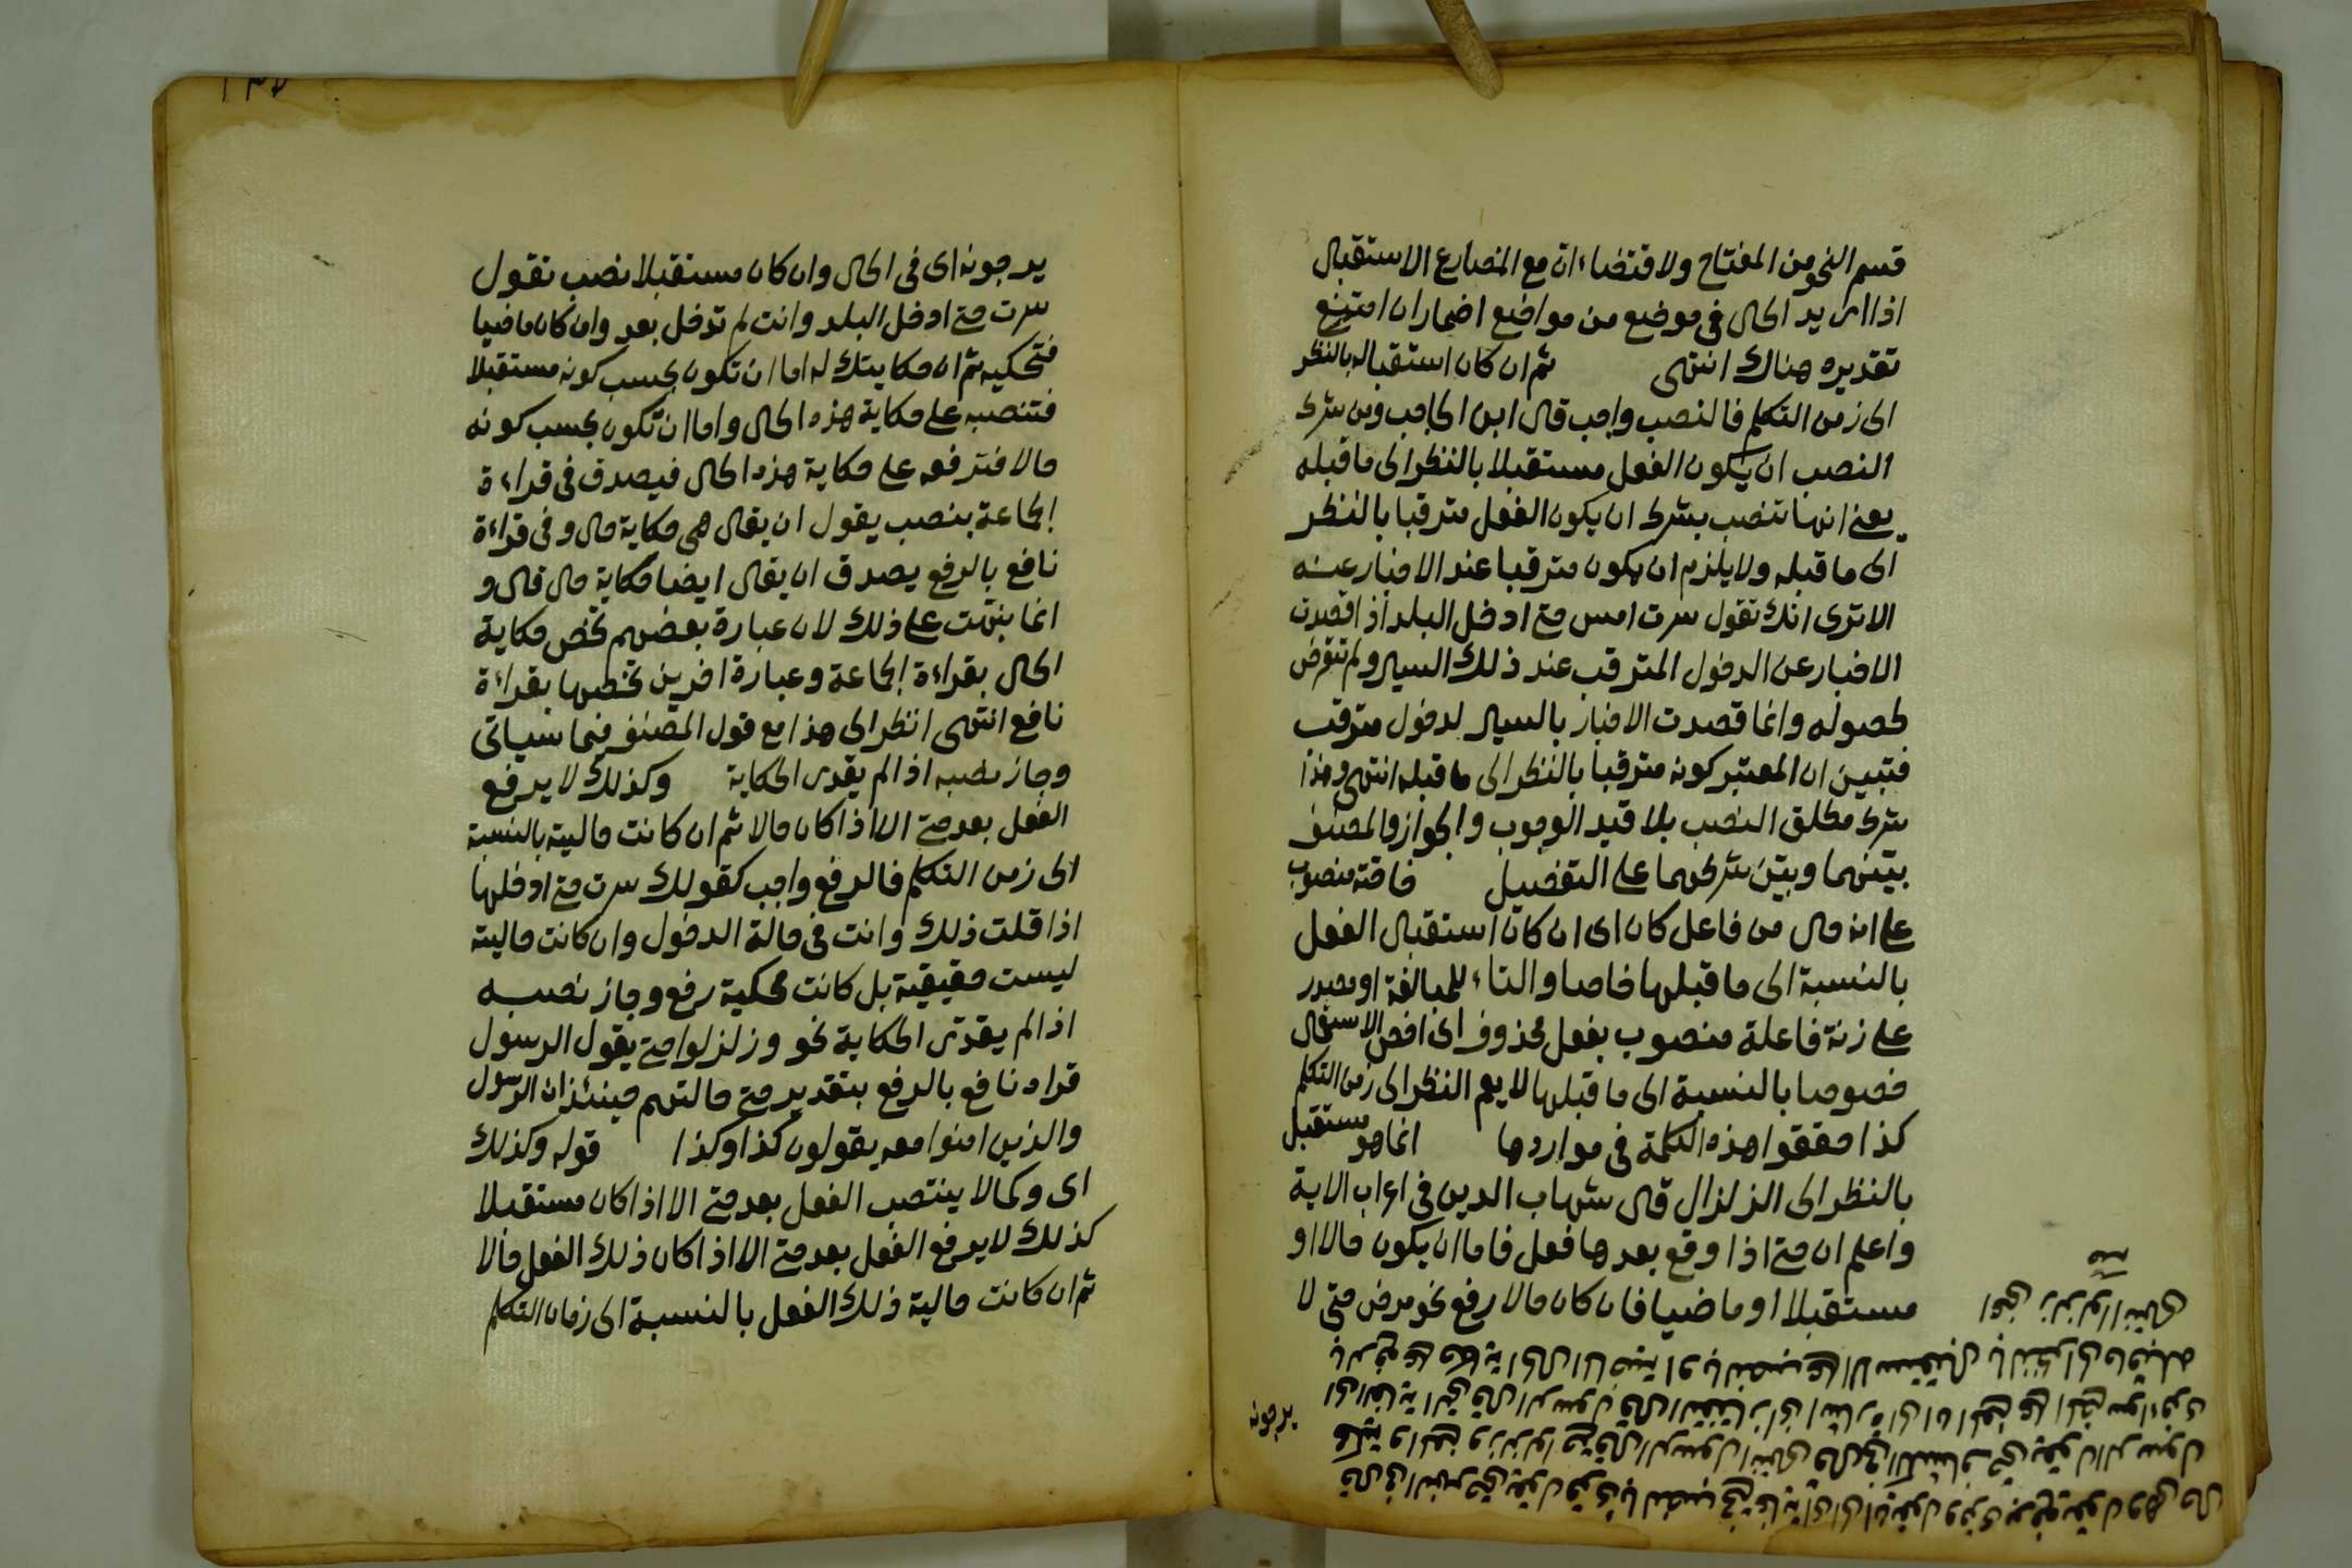 قسم النحو من المفتاح ولاقتضاء ان مع المضارع الاستقبال
اذا اريد الحال فى موضع من مواضع اضمار ان امتنع
تقديره هناك انتهى ثم ان كان استقباله بالنظر
الى زمن التكلم فالنصب واجب قال ابن الحاجب ومن شرط
النصب ان يكون الفعل مستقبلا بالنظر الى ما قبله
يعنى انها تنصب بشرط ان يكون الفعل مترقبا بالنظر
الى ما قبله ولا يلزم ان يكون مترقبا عند الاخبار عنه
الا ترى انك تقول سرت امس حتى ادخل البلد اذا قصدت
الاخبار عن الدخول المترقب عند ذلك السير ولم تتعرض
لحصوله وانما قصدت الاخبار بالسير لدخول مترقب
فتبين ان المعتبر كونه مترقبا بالنظر الى ما قبله انتهى وهذا
شرط مطلق النصب بلا قيد الوجوب والجواز والمصنف
بينهما وبين شرطهما على التفصيل خاصة منصوب
على انه حال من فاعل كان اى ان كان استقبال الفعل
بالنسبة الى ما قبلها خاصا والتاء للمبالغة او مصدر
على زنة فاعلة منصوب بفعل محذوف اى اخص الاستقبال
خصوصا بالنسبة الى ما قبلها لا يعم النظر الى زمن التكلم
كذا حققوا هذه الكلمة فى مواردها انما هو مستقبل
بالنظر الى الزلزال قال شهاب الدين فى اعراب الاية
واعلم ان حتى اذا وقع بعدها فعل فاما ان يكون حالا او
مستقبلا او ماضيا فان كان حالا رفع نحو مرض حتى لا
يرجونه
يرجونه اى فى الحال وان كان مستقبلا نصب تقول
سرت حتى ادخل البلد وانت لم تدخل بعد وان كان ماضيا
فتحكيه ثم ان حكايتك له اما ان تكون بحسب كونه مستقبلا
فتنصبه على حكاية هذه الحال واما ان تكون بحسب كونه
حالا فترفعه على حكاية هذه الحال فيصدق فى قراءة
الجماعة بنصب يقول ان يقال هى حكاية حال وفى قراءة
نافع بالرفع يصدق ان يقال ايضا حكاية حال قال و
انما نبهت على ذلك لان عبارة بعضهم تخص حكاية
الحال بقراءة الجماعة وعبارة اخرين تخصها بقراءة
نافع انتهى انظر الى هذا مع قول المصنف فيما سياتى
وجاز نصبه اذا لم يقدر الحكاية وكذلك لا يرفع
الفعل بعد حتى الا اذا كان حالا ثم ان كانت حاليته بالنسبة
الى زمن التكلم فالرفع واجب كقولك سرت حتى ادخلها
اذا قلت ذلك وانت فى حالة الدخول وان كانت حاليته
ليست حقيقية بل كانت محكية رفع وجاز نصبه
اذا لم يقدر الحكاية نحو وزلزلوا حتى يقول الرسول
قراءة نافع بالرفع بتقدير حتى حالتهم حينئذ ان الرسول
والذين امنوا معه يقولون كذا وكذا قوله وكذلك
اى وكما لا ينتصب الفعل بعد حتى الا اذا كان مستقبلا
كذلك لا يرفع الفعل بعد حتى الا اذا كان ذلك الفعل حالا
ثم ان كانت حالية ذلك الفعل بالنسبة الى زمان التكلم